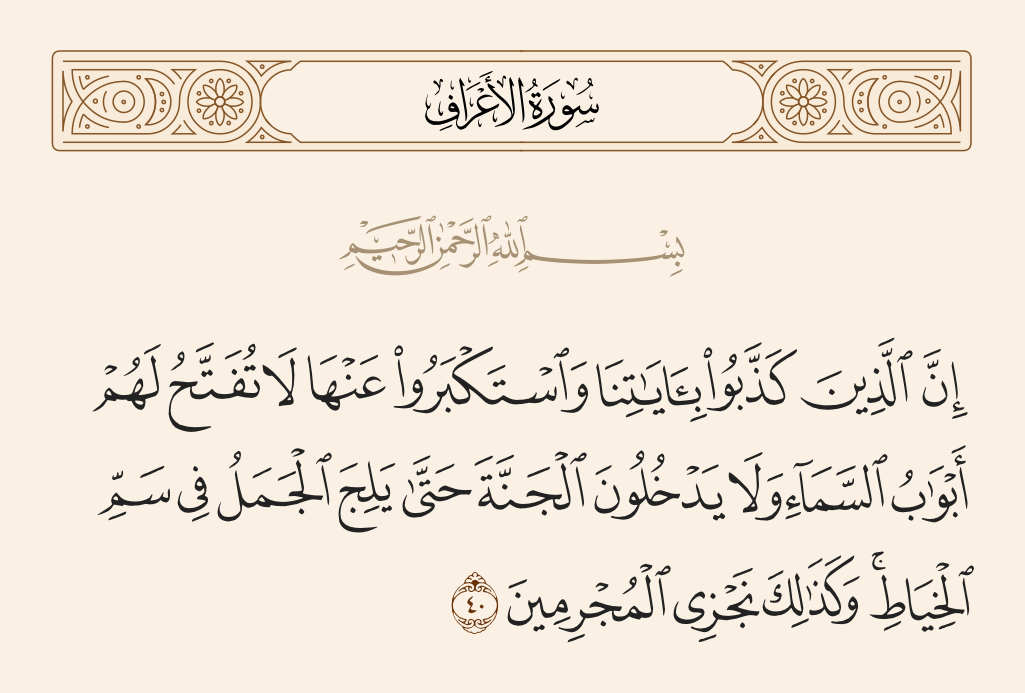 سُورَةُ الأَعۡرَافِ
بِسۡمِ ٱللَّهِ ٱلرَّحۡمَٰنِ ٱلرَّحِيمِ
إِنَّ ٱلَّذِينَ كَذَّبُواْ بِـَٔايَٰتِنَا وَٱسۡتَكۡبَرُواْ عَنۡهَا لَا تُفَتَّحُ لَهُمۡ
أَبۡوَٰبُ ٱلسَّمَآءِ وَلَا يَدۡخُلُونَ ٱلۡجَنَّةَ حَتَّىٰ يَلِجَ ٱلۡجَمَلُ فِي سَمِّ
ٱلۡخِيَاطِۚ وَكَذَٰلِكَ نَجۡزِي ٱلۡمُجۡرِمِينَ ٤٠